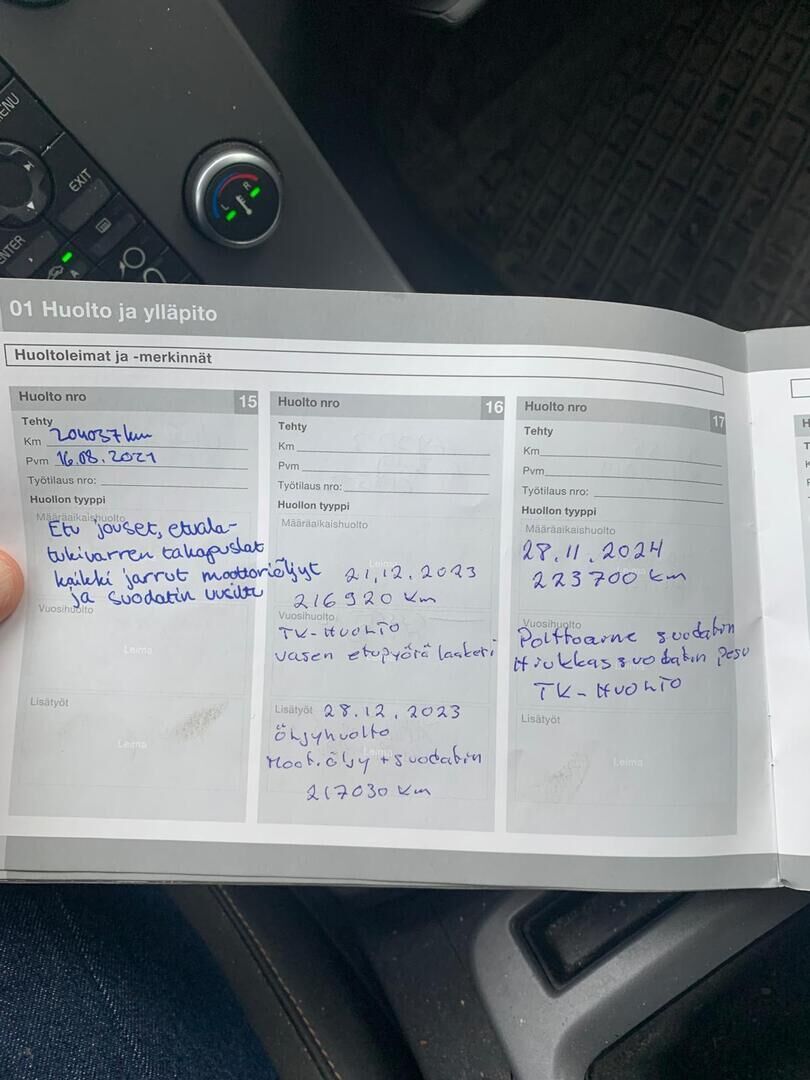 MENU
EXIT
ENTER
A
L R
01 Huolto ja ylläpito
Huoltoleimat ja -merkinnät
Huolto nro 15
Tehty
Km 204037km
Pvm 16.08.2021
Työtilaus nro:
Huollon tyyppi
Määräaikaishuolto
Etu jouset, etuala-
tukivarren takapuslat
kaikki jarrut moottoriöljyt
ja suodatin uusittu
Vuosihuolto
Leima
Lisätyöt
Leima
Huolto nro 16
Tehty
Km
Pvm
Työtilaus nro:
Huollon tyyppi
Määräaikaishuolto
Leima
21.12.2023
216920 km
Vuosihuolto
TK-HUOLTO
vasen etupyörä laakeri
Lisätyöt 28.12.2023
Öljyhuolto
Leima
Moot. öljy + suodatin
217030 km
Huolto nro 17
Tehty
Km
Pvm
Työtilaus nro:
Huollon tyyppi
Määräaikaishuolto
28.11.2024
223700 km
Leima
Vuosihuolto
Polttoaine suodatin
Hiukkassuodatin pesu
TK-HUOLTO
Lisätyöt
Leima